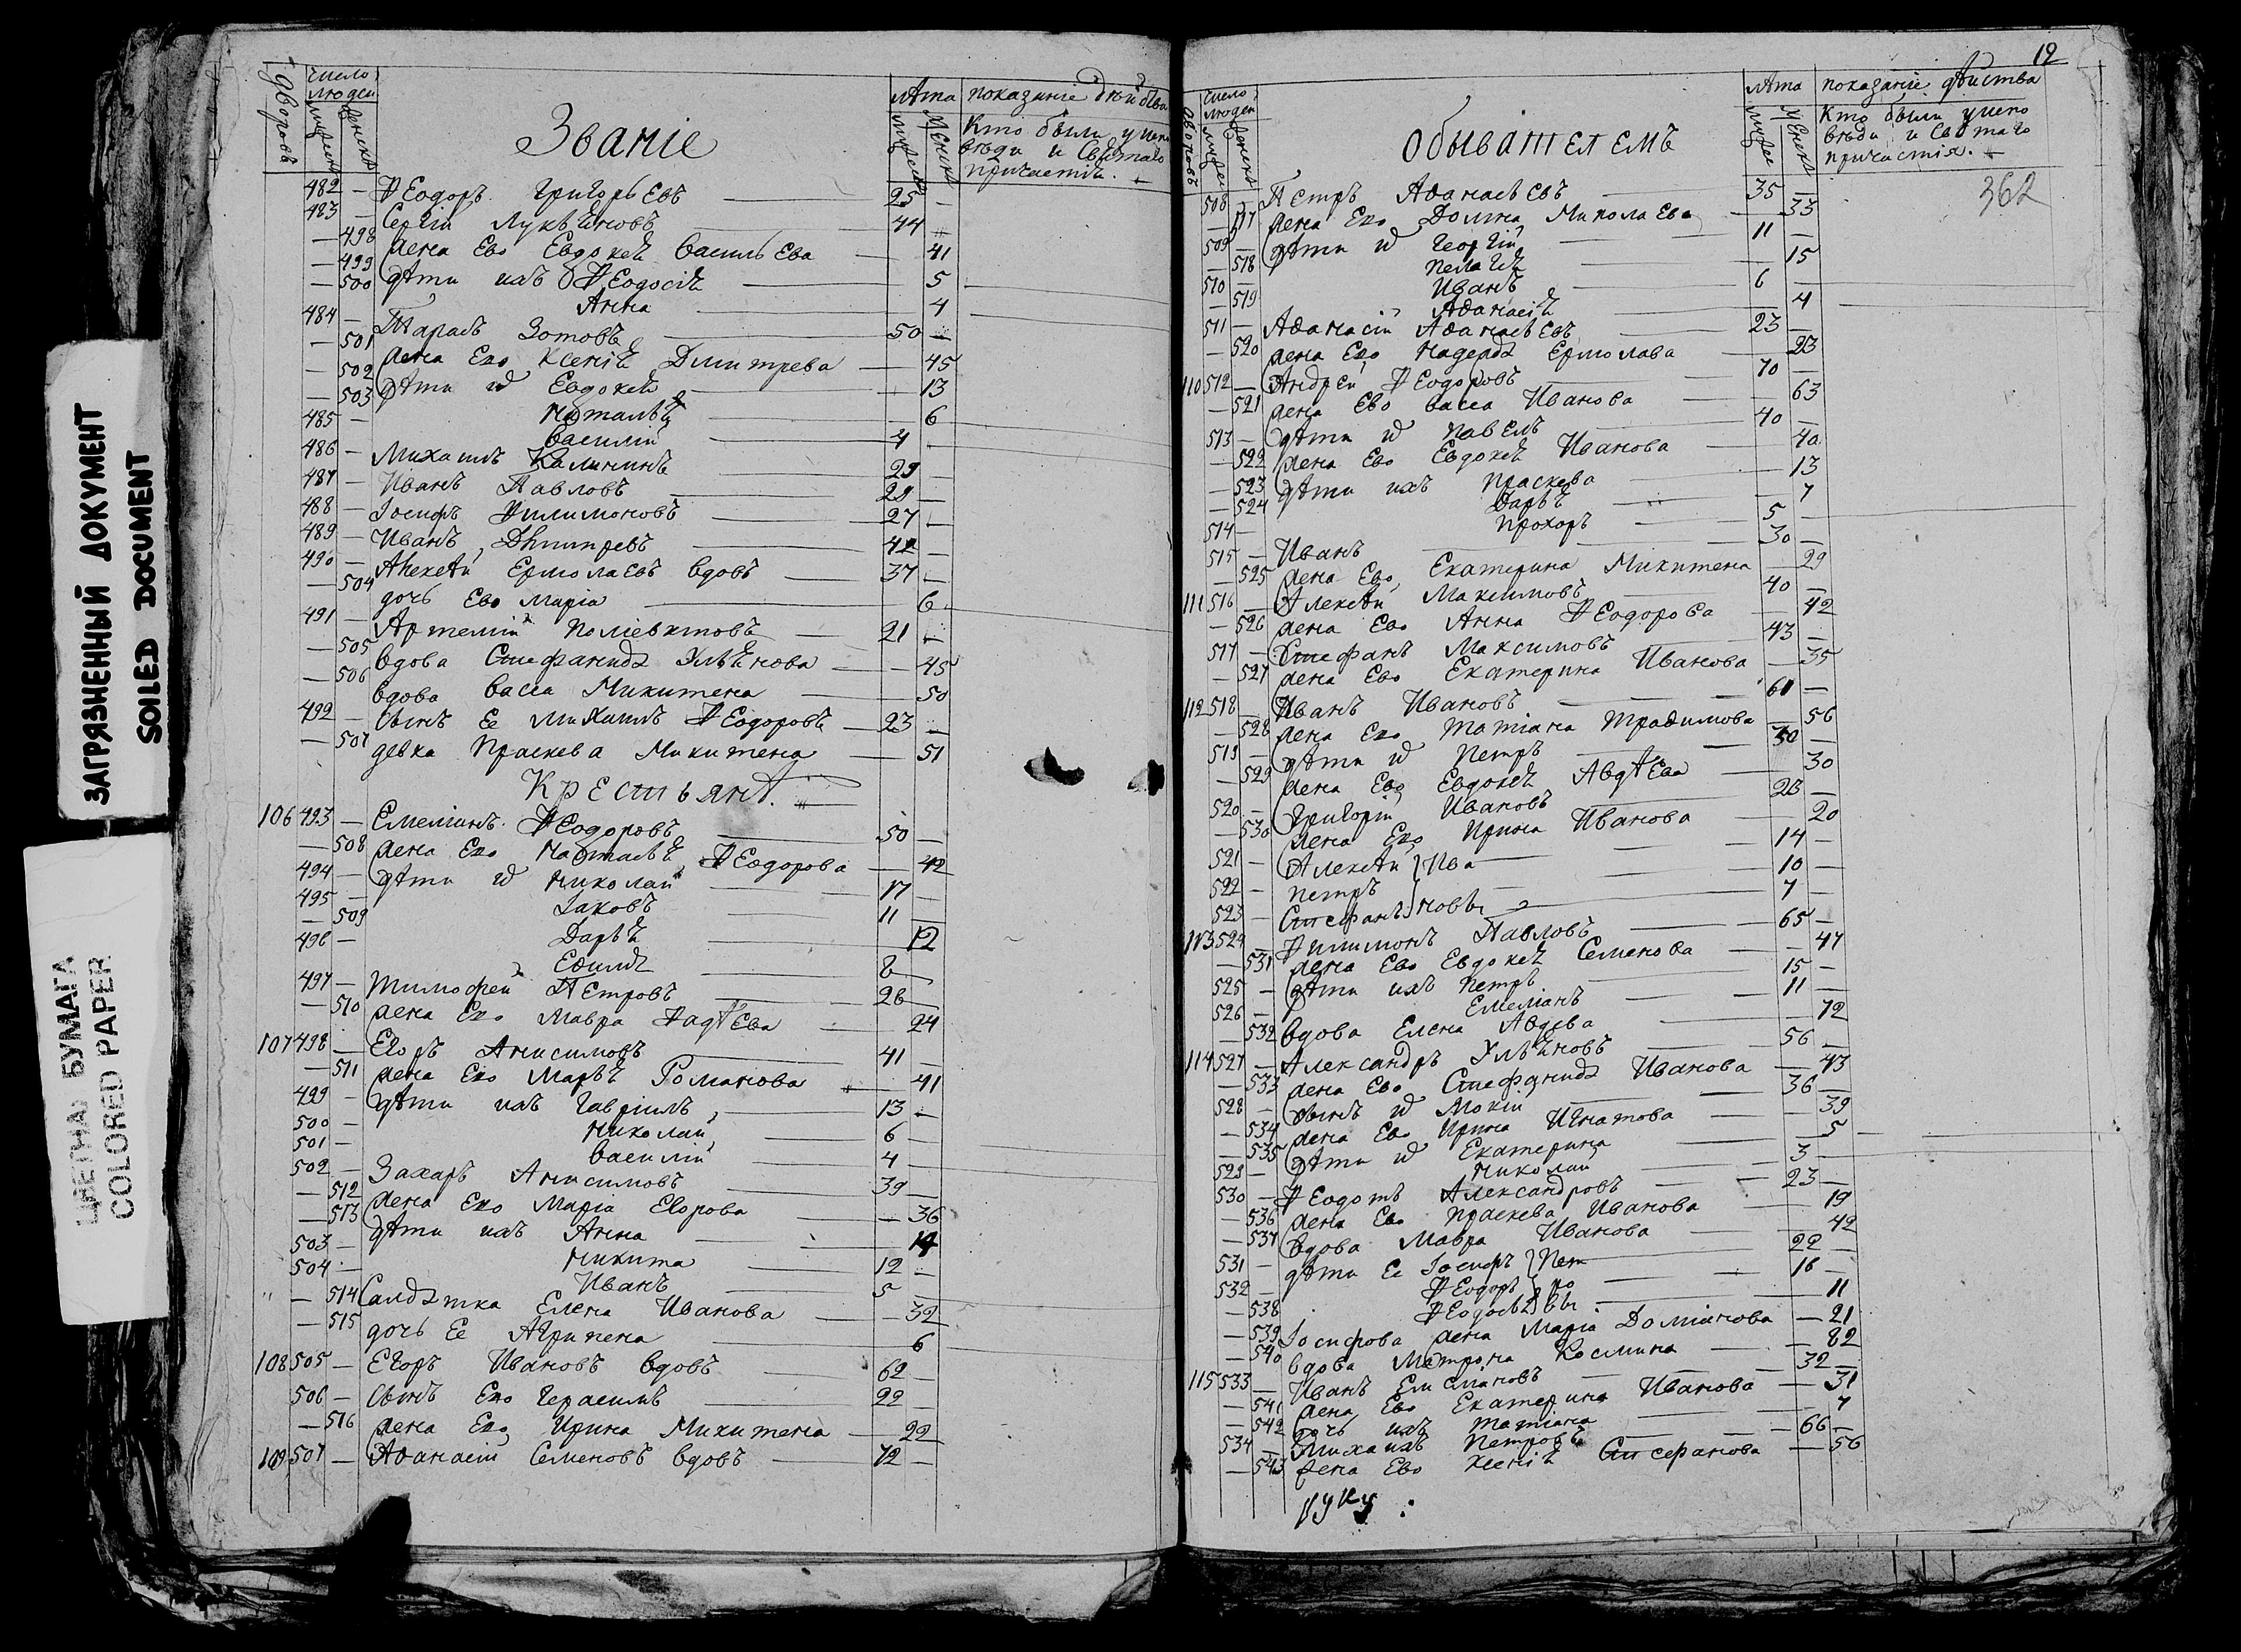 ЗАГРЯЗНЕННЫЙ ДОКУМЕНТ
SOILED DOCUMENT
ЦВЕТНАЯ БУМАГА
COLORED PAPER
дворовъ
число людеи
мужеска
женска
Званіе
лѣта
мужеска
женска
показаніе дѣиства
Кто были у испо
вѣди и святаго
причастія.
482 — Ѳеодоръ Григорьевъ — 25 —
483 — Сергіи Лукьяновъ — 44
— 498 жена Ево Евдокея васильева — 41
— 499 дѣти ихъ Ѳеодосія — 5
— 500 Анна — 4
484 — Тарасъ Зотовъ — 50 —
— 501 жена Ево Ксенія Дмитрева — 45
— 502 дѣти их Евдокея — 13
— 503 Наталья — 6
485 — василіи — 4 —
486 — Михаилъ Калининъ — 29 —
487 — Иванъ Павловъ — 29 —
488 — Іосифъ Филимоновъ — 27 —
489 — Иванъ Дмитревъ — 42 —
490 — Алексѣи Ермолаевъ вдовъ — 37 —
— 504 дочь Ево Марія — 6
491 — Артеміи Поліевктовъ — 21 —
— 505 вдова Стефанида Ульянова — 45
— 506 вдова васса Микитена — 50
492 — сынъ Ее михаилъ Ѳеодоровъ — 23 —
— 507 девка Праскева Микитена — 51
Крестьянѣ.
106 493 — Емеліянъ Ѳеодоровъ — 50 —
— 508 жена Ево Наталья Ѳеодорова — 42
494 — дѣти их николаи — 17 —
495 — Іаковъ — 11 —
— 509 Дарья — 12
496 — Ефимъ — 8 —
497 — Тимофеи Петровъ — 26 —
— 510 жена Ево мавра Ѳадѣева — 24
107 498 — Егоръ Анисимовъ — 41 —
— 511 жена Ево Марья Романова — 41
499 — дѣти ихъ Гавріилъ — 13 —
500 — николаи — 6 —
501 — василіи — 4 —
502 — Захаръ Анисимовъ — 39 —
— 512 жена Ево Марія Егорова — 36
— 513 дѣти ихъ Анна — 14
503 — никита — 12 —
504 — Иванъ — 5 —
— 514 Салдатка Елена Иванова — 32
— 515 дочь Ее Агрипена — 6
108 505 — Егоръ Ивановъ вдовъ — 62 —
506 — сынъ Ево Герасимъ — 22 —
— 516 жена Ево Ирина Микитена — 22
109 507 — Афанасіи Семеновъ вдовъ — 72 —
12
дворовъ
число людеи
мужеска
женска
обывателемъ
лѣта
мужеска
женска
показаніе дѣиства
Кто были у испо
вѣди и святаго
причастія.
362
508 — Петръ Афанасьевъ — 35 —
— 517 жена Ево Домна Миколаева — 33
509 — дѣти их Георгіи — 11 —
— 518 пелагея — 15
510 — Иванъ — 6 —
— 519 Афанасія — 4
511 — Афанасіи Афанасьевъ — 23 —
— 520 жена Ево Надежда Ермолава — 23
110 512 — Андреи Ѳеодоровъ — 70 —
— 521 жена Ево васса Иванова — 63
513 — дѣти их павелъ — 40 —
— 522 жена Ево Евдокея Иванова — 40
— 523 дѣти ихъ Праскева — 13
— 524 Дарья — 7
514 — Прохоръ — 5 —
515 — Иванъ — 30 —
— 525 жена Ево Екатерина Микитена — 29
111 516 — Алексѣи Максимовъ — 40 —
— 526 жена Ево Анна Ѳеодорова — 42
517 — Стефанъ Максимовъ — 43 —
— 527 жена Ево Екатерина Иванова — 35
112 518 — Иванъ Ивановъ — 61 —
— 528 жена Ево Татіана Трафимова — 56
519 — дѣти их Петръ — 30 —
— 529 жена Ево Евдокея Авдѣева — 30
520 — Григоріи Ивановъ — 23 —
— 530 жена Ево Ирина Иванова — 20
521 — Алексѣи } Ива — 14 —
522 — Петръ — 10 —
523 — Стефанъ } новы — 7 —
113 524 — Филимонъ Павловъ — 65 —
— 531 жена Ево Евдокея Семенова — 47
525 — дѣти ихъ петръ — 15 —
526 — Емеліанъ — 11 —
— 532 вдова Елена Авдева — 72
114 527 — Александръ Ульяновъ — 56 —
— 533 жена Ево Стефанида Иванова — 43
528 — сынъ их Мокіи — 36 —
— 534 жена Ево Ирина Игнатова — 39
— 535 дѣти их Екатерина — 5
529 — николаи — 3 —
530 — Ѳеодотъ Александровъ — 23 —
— 536 жена Ево праскева Иванова — 19
— 537 вдова Мавра Иванова — 42
531 — дѣти Ее Іосифъ } Пет — 22 —
532 — Ѳеодоръ } ро — 16 —
— 538 Ѳеодосья } вы — 11
— 539 Іосифова жена Марія Доміанова — 21
— 540 вдова Матрона Космина — 82
115 533 — Иванъ Емеліановъ — 32 —
— 541 жена Ево Екатерина Иванова — 31
— 542 дочь ихъ Татіана — 7
534 — Михаилъ Петровъ — 66 —
— 543 жена Ево Ксенія Стефанова — 56